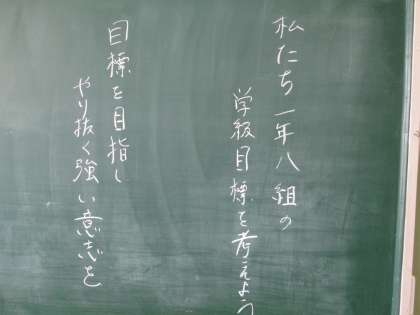 私たち一年八組の
学級目標を考えよう
目標を目指し
やり抜く強い意志を